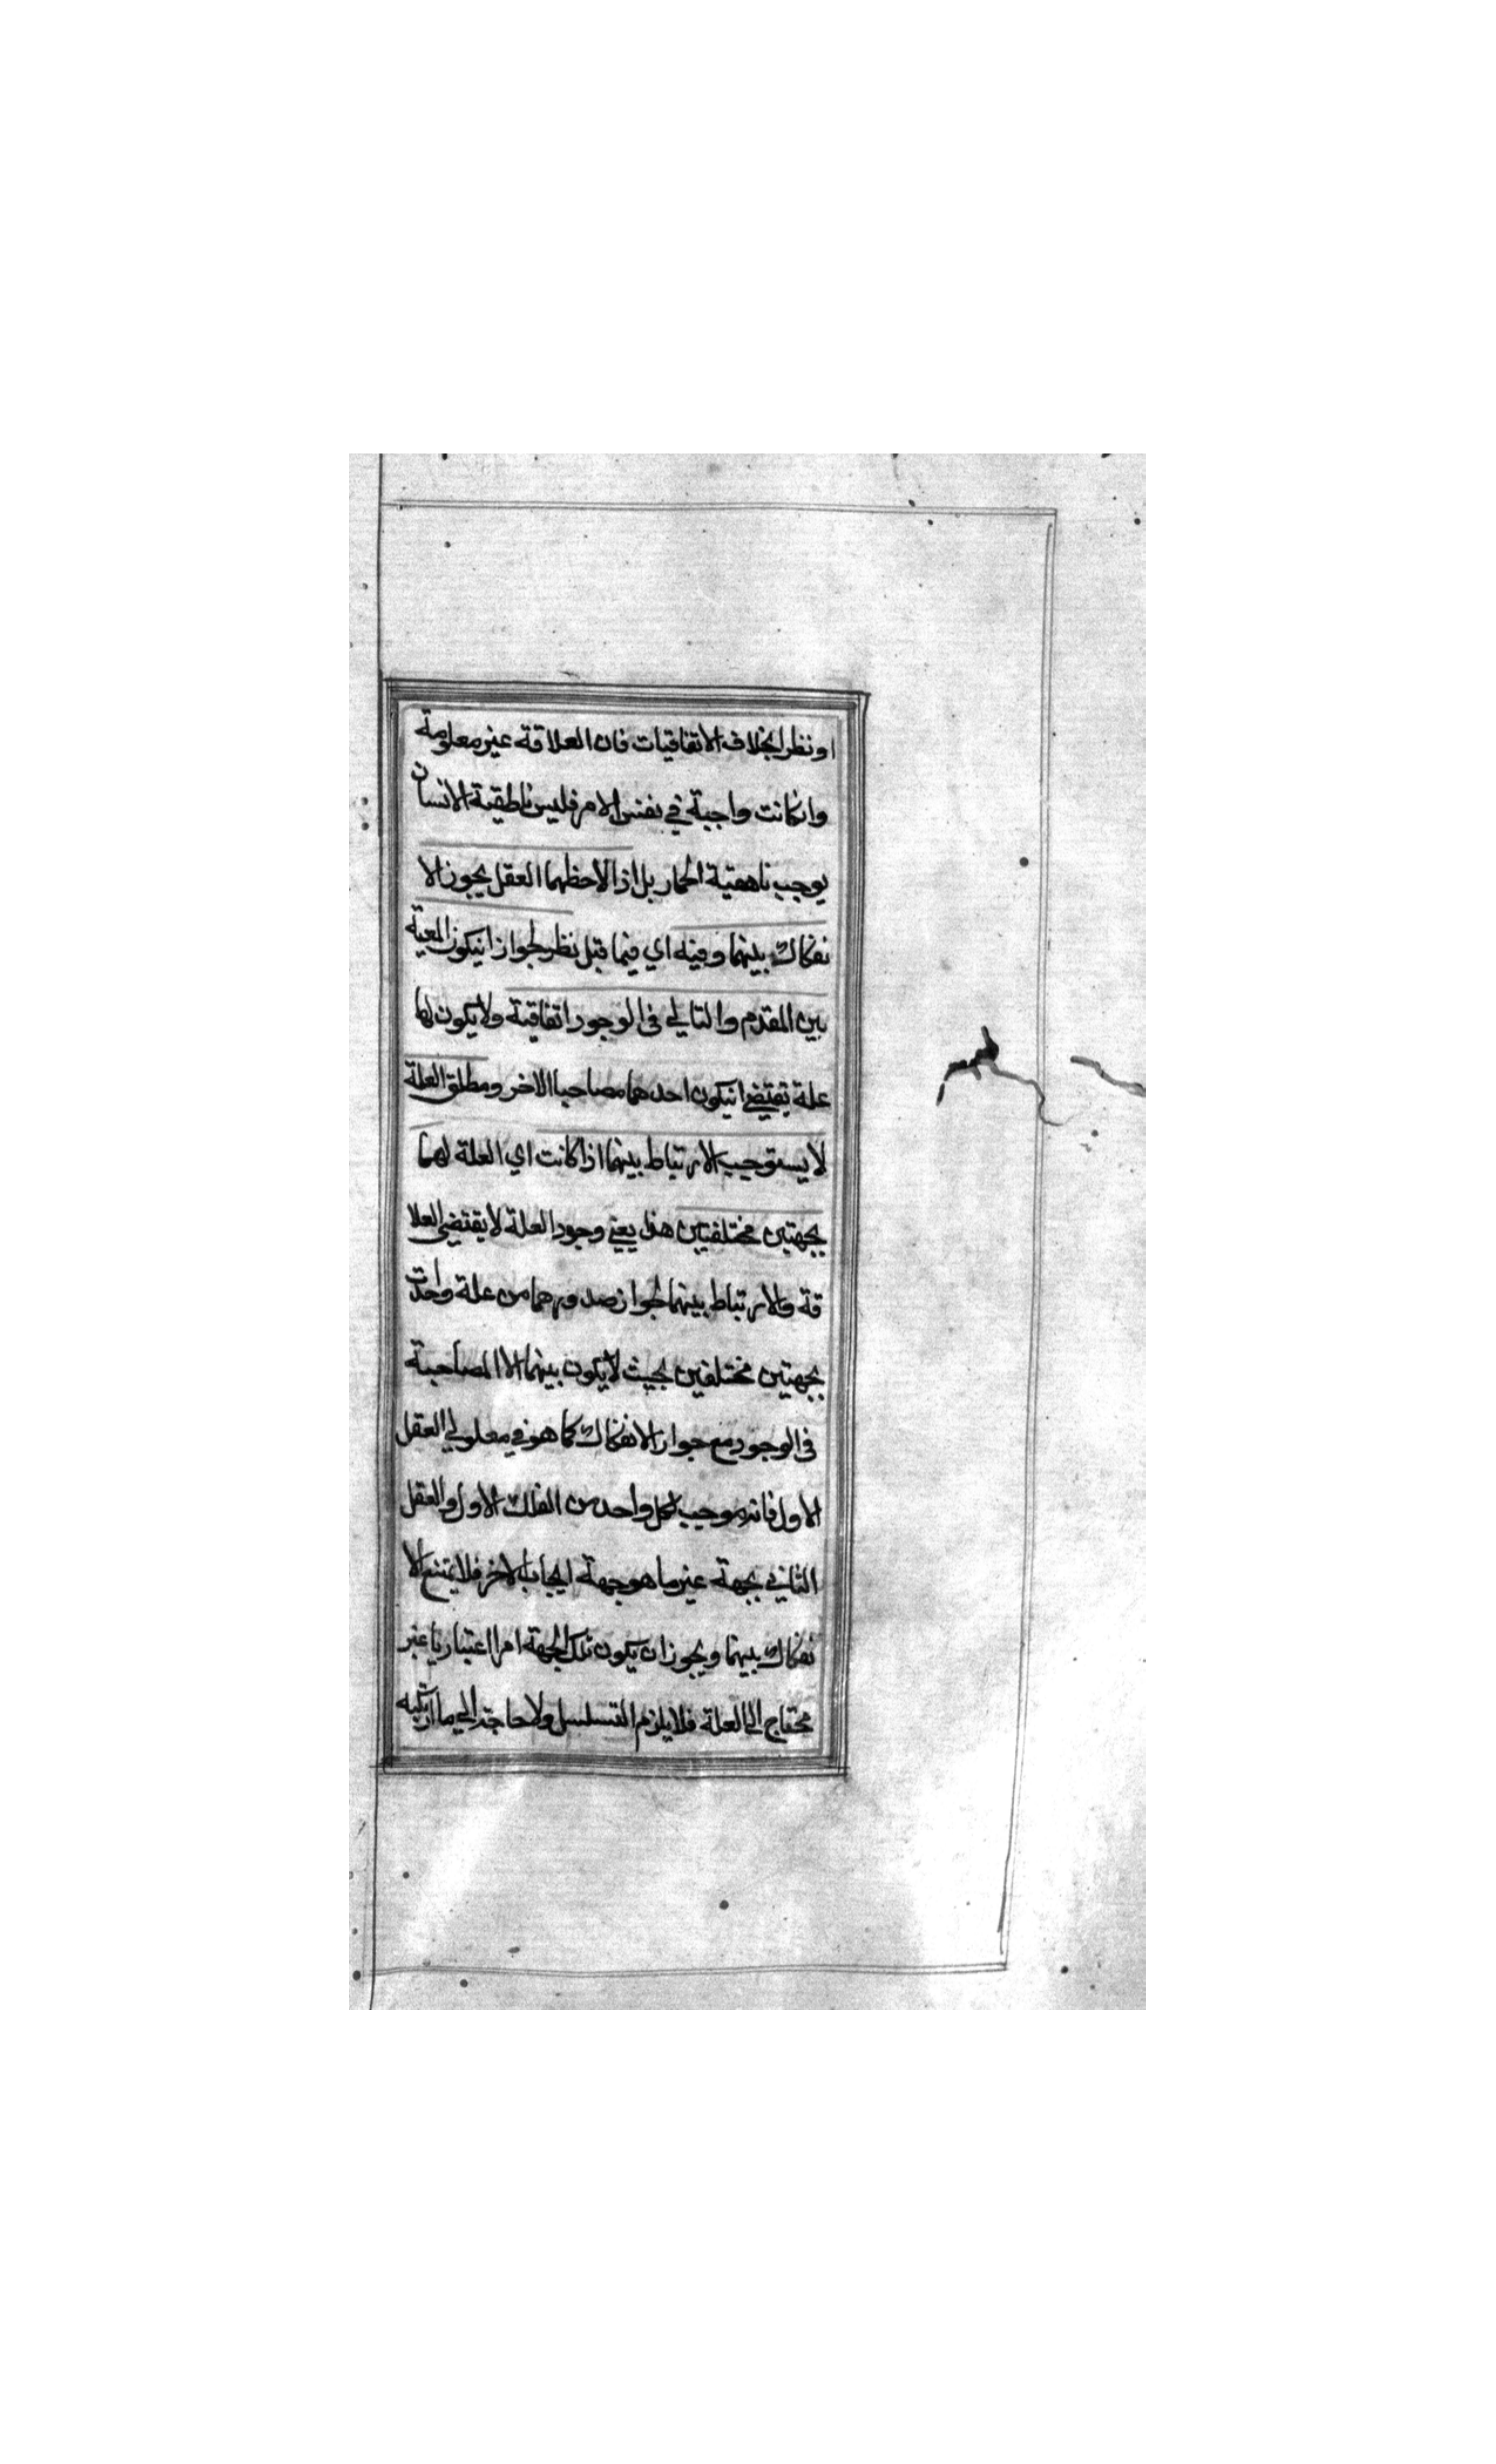 او نظرا بخلاف الاتفاقيات فان العلاقة غير معلومة
وانكانت واجبة في نفس الامر فليس ناطقية الانسان
يوجب ناهقية الحمار بل اذا لاحظهما العقل يجوز الا
نفكاك بينهما وفيه اي فيما قيل نظر لجواز انيكون المعية
بين المقدم والتالي في الوجود اتفاقية ولا يكون لها
علة يقتضي انيكون احدهما مصاحبا الاخر ومطلق العلة
لا يستوجب الارتباط بينهما اذا كانت اي العلة لهما
بجهتين مختلفتين هذا يعني وجود العلة لا يقتضي العلا
قة والارتباط بينهما لجواز صدورهما من علة واحدة
بجهتين مختلفين بحيث لا يكون بينهما الا المصاحبة
في الوجود مع جواز الانفكاك كما هو في معلولي العقل
الاول فانه موجب لكل واحد من الفلك الاول والعقل
الثاني بجهة غير ما هو جهة ايجاب الاخر فلا يمتنع الا
نفكاك بينهما ويجوز ان يكون تلك الجهة امرا اعتباريا غير
محتاج الى العلة فلا يلزم التسلسل ولا حاجة الي ما ارتكبه